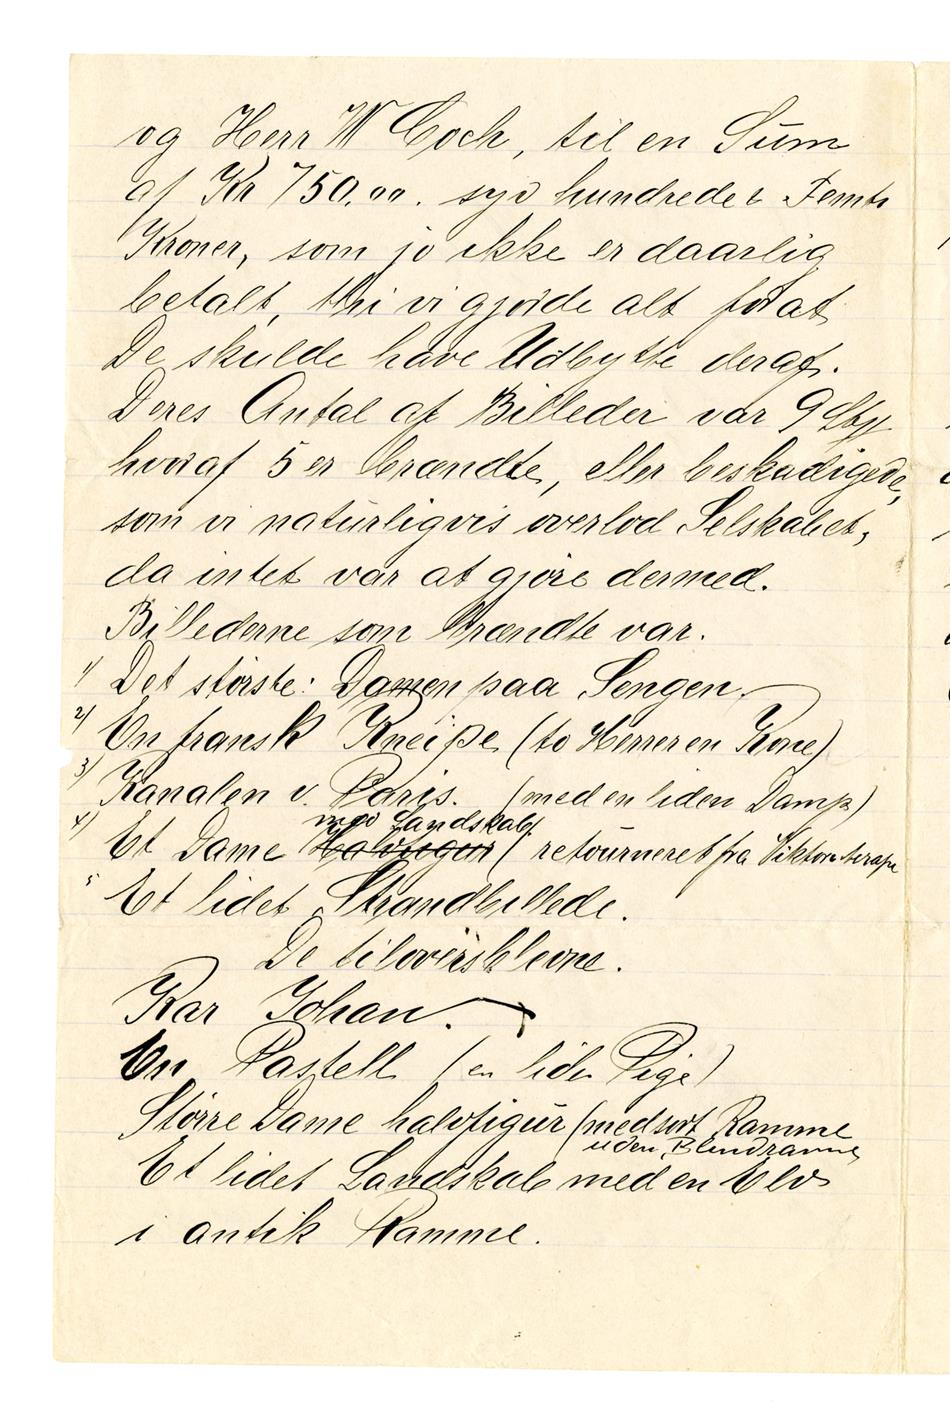 og Herr W Coch, til en Sum
af Kr 750,00. syv hundrede & Femti
Kroner, som jo ikke er daarlig
betalt, thi vi gjorde alt for at
De skulde have Udbytte deraf.
Deres Antal af Billeder var 9 Sty
hvoraf 5 er brændte, eller beskadigede,
som vi naturligvis overlod Selskabet,
da intet var at gjøre dermed.
Billederne som brændte var.
1/ Det største: Damen paa Sengen.
2/ En fransk Kneipe (to Herrer en Kone)
3/ Kanalen v. Paris. (med en liden Damp)
med Landskab
4/ Et Dame Halvfigur (retourneret fra Viktoria
5 Et lidet Strandbillede.
De tiloversblevne.
Kar Johan.
En Pastell (en liden Pige)
Større Dame halvfigur (med sort Ramme
uden Blendramme
Et lidet Landskab med en Elv
i antik Ramme.